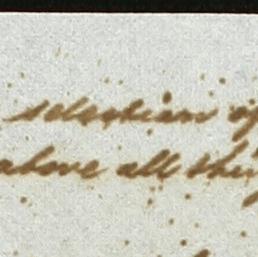 selection of
above all thin